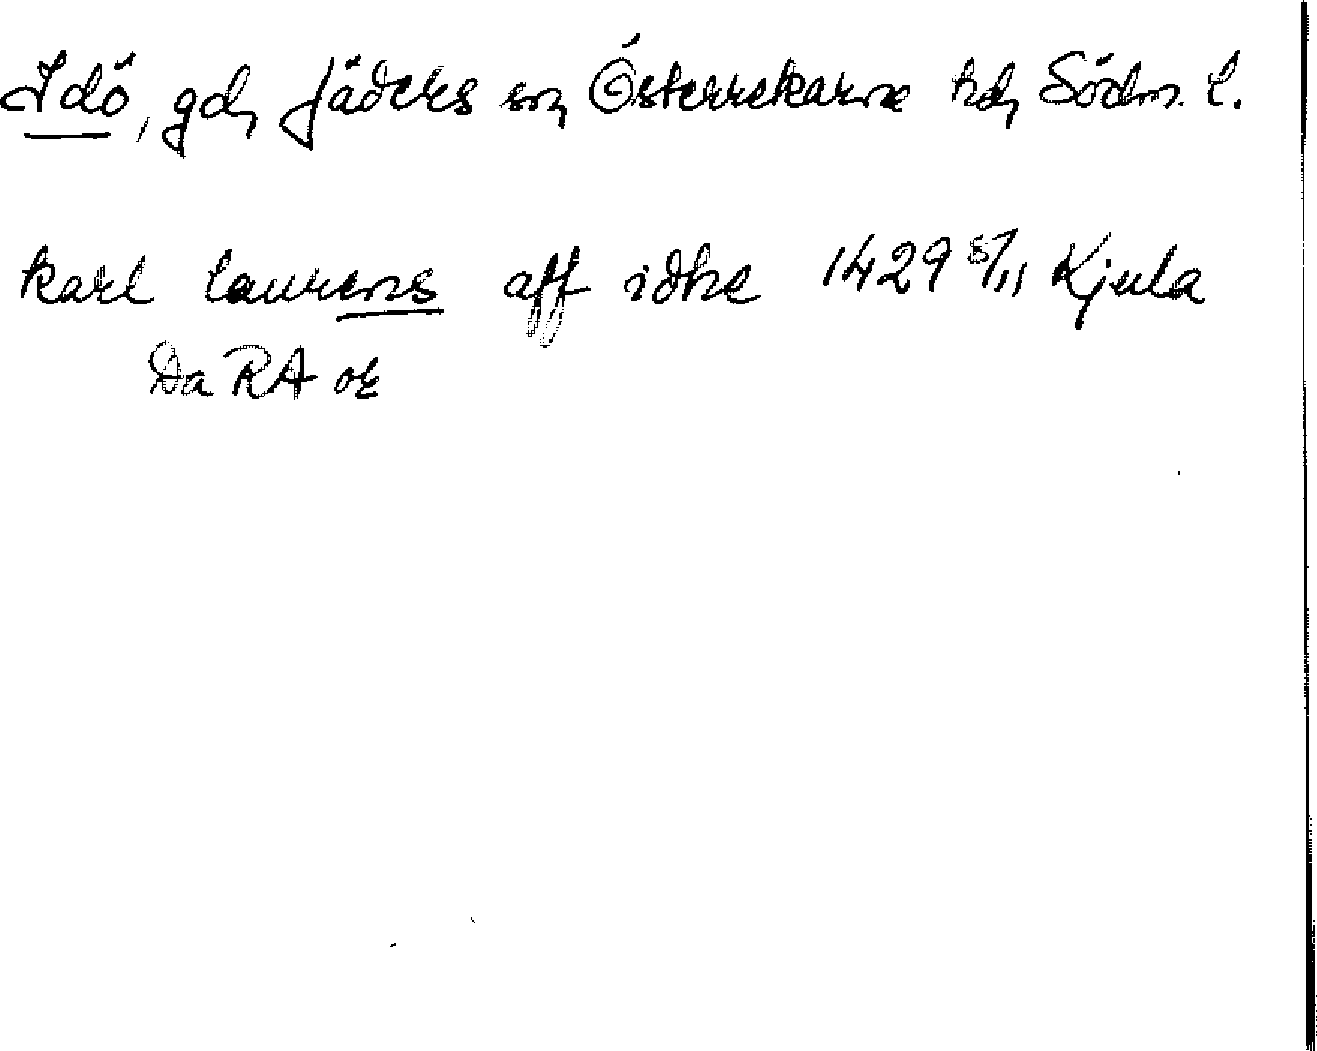 Idö, gd, Jäders sn, Österrekarne hd, Södm. l.
karl laurens aff idhe 1429 8/11 Kjula
Da RA or